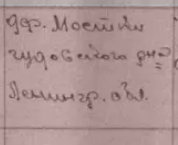 дер. Мостки
чудовского р-на
Ленингр. обл.